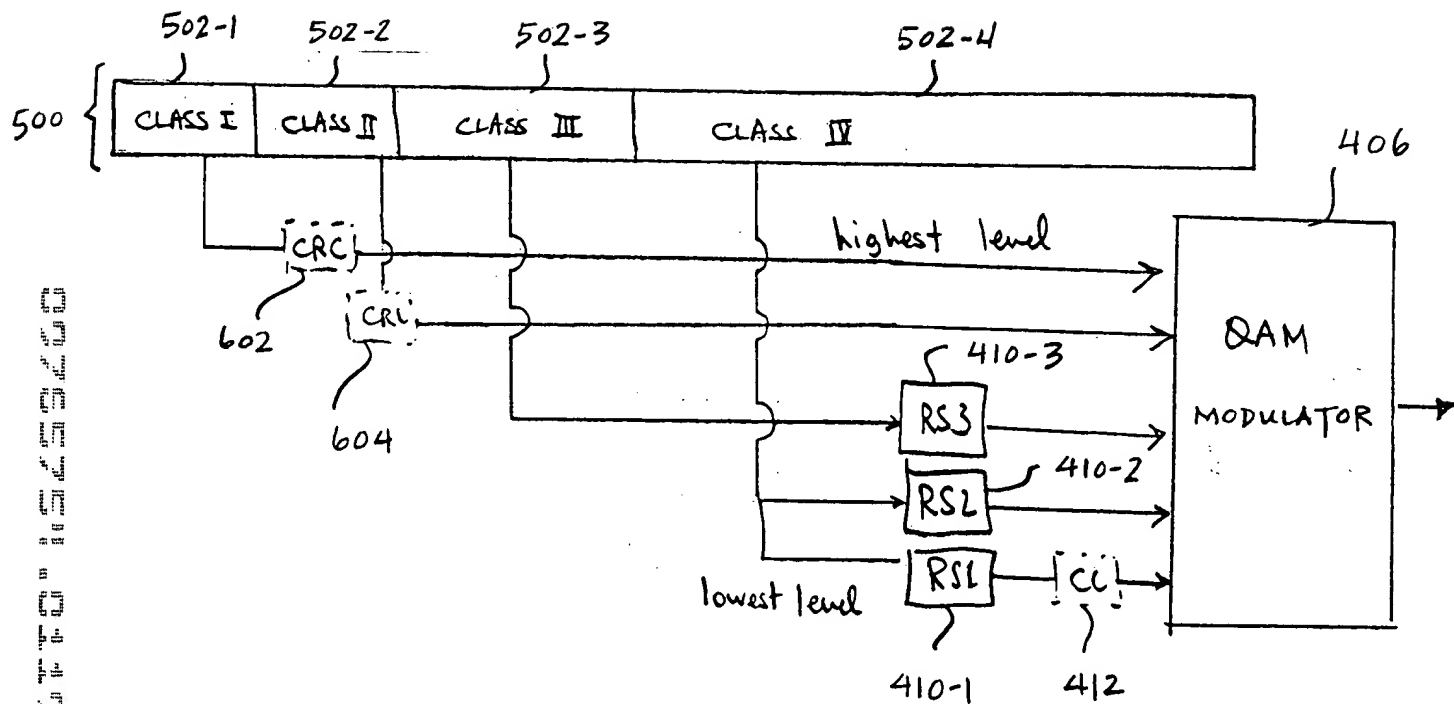 502-1
502-2
502-3
502-4
500
CLASS I
CLASS II
CLASS III
CLASS IV
406
CRC
highest level
602
CRC
604
QAM
MODULATOR
410-3
RS3
410-2
RS2
lowest level
RS1
CC
410-1
412